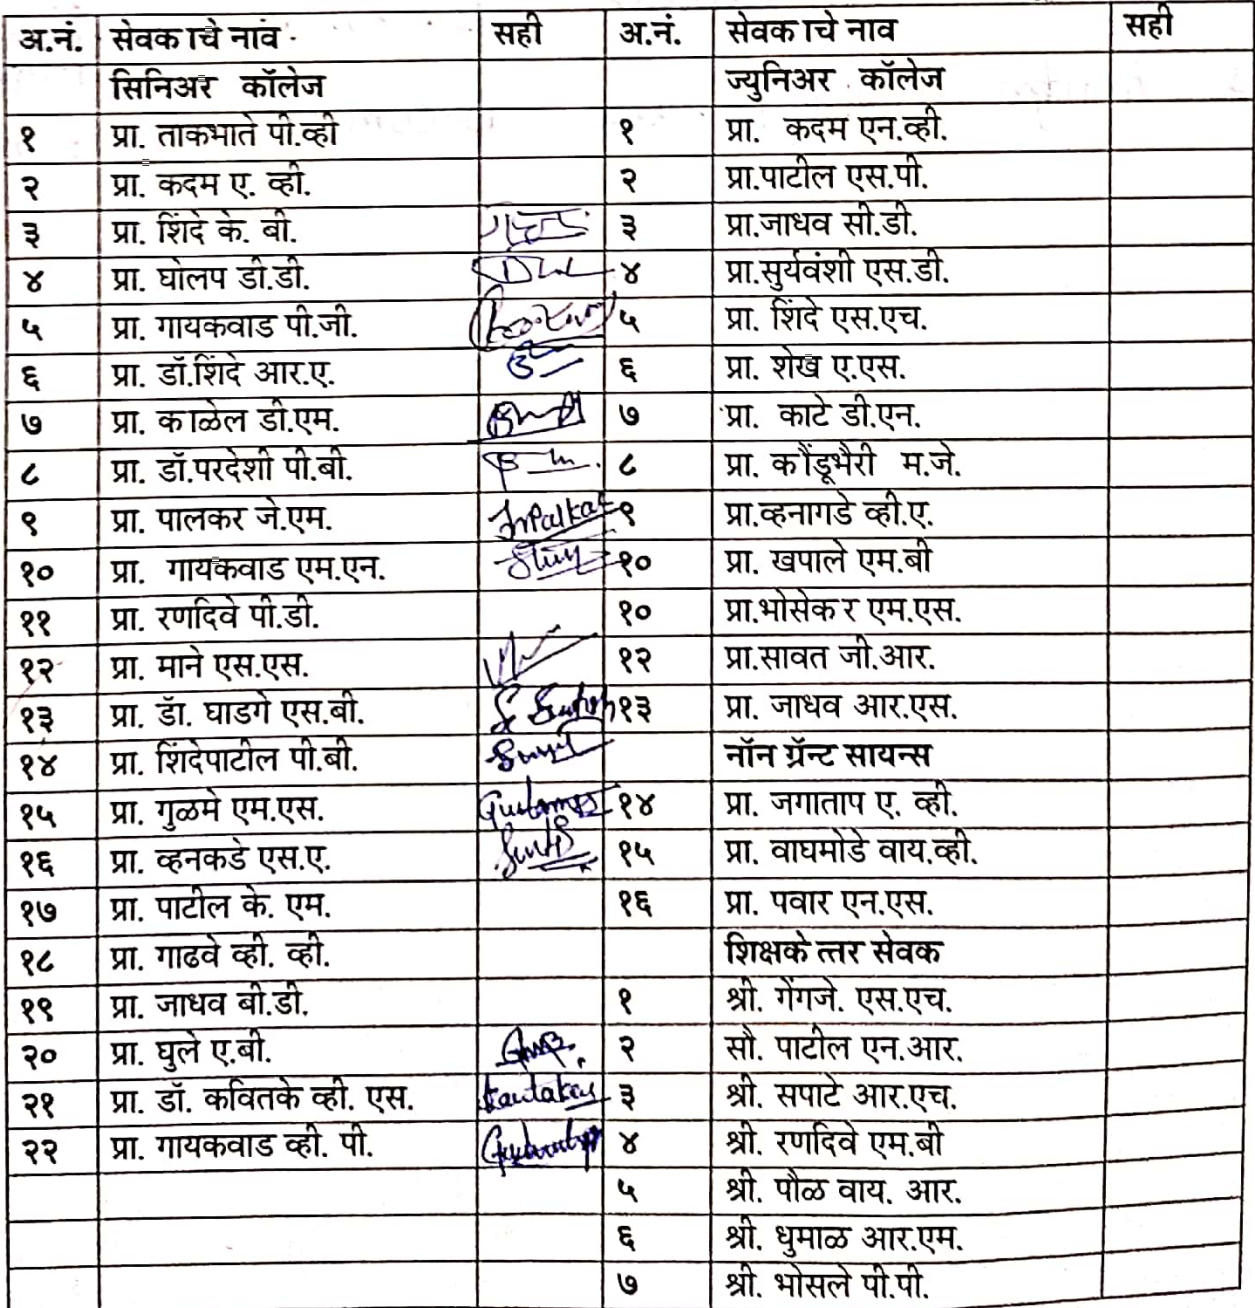 अ.नं. सेवकाचे नाव सही अ.नं. सेवकाचे नाव सही
सिनिअर कॉलेज ज्युनिअर कॉलेज
१ प्रा. ताकभाते पी.व्ही १ प्रा. कदम एन.व्ही.
२ प्रा. कदम ए. व्ही. २ प्रा.पाटील एस.पी.
३ प्रा. शिंदे के. बी. ३ प्रा.जाधव सी.डी.
४ प्रा. घोलप डी.डी. ४ प्रा.सुर्यवंशी एस.डी.
५ प्रा. गायकवाड पी.जी. ५ प्रा. शिंदे एस.एच.
६ प्रा. डॉ.शिंदे आर.ए. ६ प्रा. शेख ए.एस.
७ प्रा. काळेल डी.एम. ७ प्रा. काटे डी.एन.
८ प्रा. डॉ.परदेशी पी.बी. ८ प्रा. कौंडूभैरी म.जे.
९ प्रा. पालकर जे.एम. ९ प्रा.व्हनागडे व्ही.ए.
१० प्रा. गायकवाड एम.एन. १० प्रा. खपाले एम.बी
११ प्रा. रणदिवे पी.डी. १० प्रा.भोसेकर एम.एस.
१२ प्रा. माने एस.एस. १२ प्रा.सावत जी.आर.
१३ प्रा. डॉ. घाडगे एस.बी. १३ प्रा. जाधव आर.एस.
१४ प्रा. शिंदेपाटील पी.बी. नॉन ग्रॅन्ट सायन्स
१५ प्रा. गुळमे एम.एस. १४ प्रा. जगाताप ए. व्ही.
१६ प्रा. व्हनकडे एस.ए. १५ प्रा. वाघमोडे वाय.व्ही.
१७ प्रा. पाटील के. एम. १६ प्रा. पवार एन.एस.
१८ प्रा. गाढवे व्ही. व्ही. शिक्षकेत्तर सेवक
१९ प्रा. जाधव बी.डी. १ श्री. गेंगजे. एस.एच.
२० प्रा. घुले ए.बी. २ सौ. पाटील एन.आर.
२१ प्रा. डॉ. कवितके व्ही. एस. ३ श्री. सपाटे आर.एच.
२२ प्रा. गायकवाड व्ही. पी. ४ श्री. रणदिवे एम.बी
५ श्री. पौळ वाय. आर.
६ श्री. धुमाळ आर.एम.
७ श्री. भोसले पी.पी.